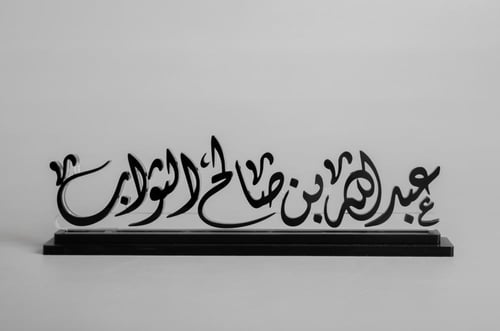 عبدالله بن صالح الثواب